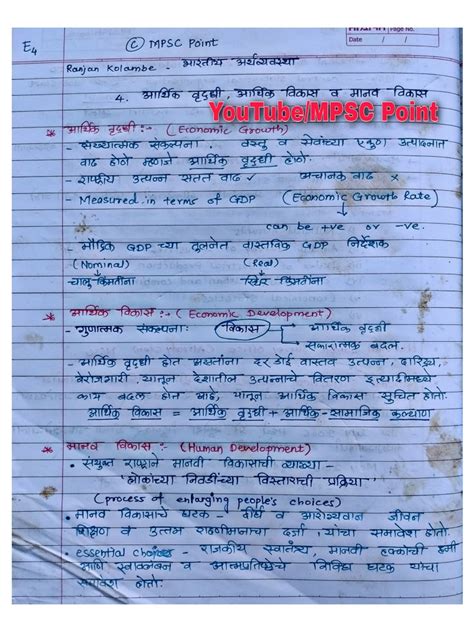 E4
© MPSC Point
Page no.
Date / /
Ranjan Kolambe - भारतीय अर्थव्यवस्था
4. आर्थिक वृद्धी, आर्थिक विकास व मानव विकास
YouTube/MPSC Point
* आर्थिक वृद्धी :- (Economic Growth)
- संख्यात्मक संकल्पना. वस्तू व सेवांच्या एकूण उत्पादनात
वाढ होते म्हणजे आर्थिक वृद्धी होते.
- राष्ट्रीय उत्पन्न सतत वाढ ✓ अचानक वाढ ×
- Measured in terms of GDP (Economic Growth Rate)
can be +ve or -ve.
- मौद्रिक GDP च्या तुलनेत वास्तविक GDP निर्देशक
(Nominal) (Real)
चालू किंमतींना स्थिर किंमतींना
* आर्थिक विकास :- (Economic Development)
- गुणात्मक संकल्पना: विकास आर्थिक वृद्धी
सकारात्मक बदल.
- आर्थिक वृद्धी होत असतांना दर डोई वास्तव उत्पन्न, दारिद्र्य,
बेरोजगारी, यातून देशातील उत्पन्नाचे वितरण इत्यादींमध्ये
काय बदल होत आहे, यातून आर्थिक विकास सुचित होतो.
आर्थिक विकास = आर्थिक वृद्धी + आर्थिक-सामाजिक कल्याण
* मानव विकास :- (Human Development)
• संयुक्त राष्ट्राने मानवी विकासाची व्याख्या -
"लोकांच्या निवडींच्या विस्ताराची प्रक्रिया"
(process of enlarging people's choices)
• मानव विकासाचे घटक - दीर्घ व आरोग्यवान जीवन
शिक्षण व उत्तम राहणीमानाचा दर्जा, यांचा समावेश होतो.
• essential choices - राजकीय स्वातंत्र्य, मानवी हक्कांची हमी
आणि स्वावलंबन व आत्मप्रतिष्ठेचे विविध घटक यांचा
समावेश होतो.